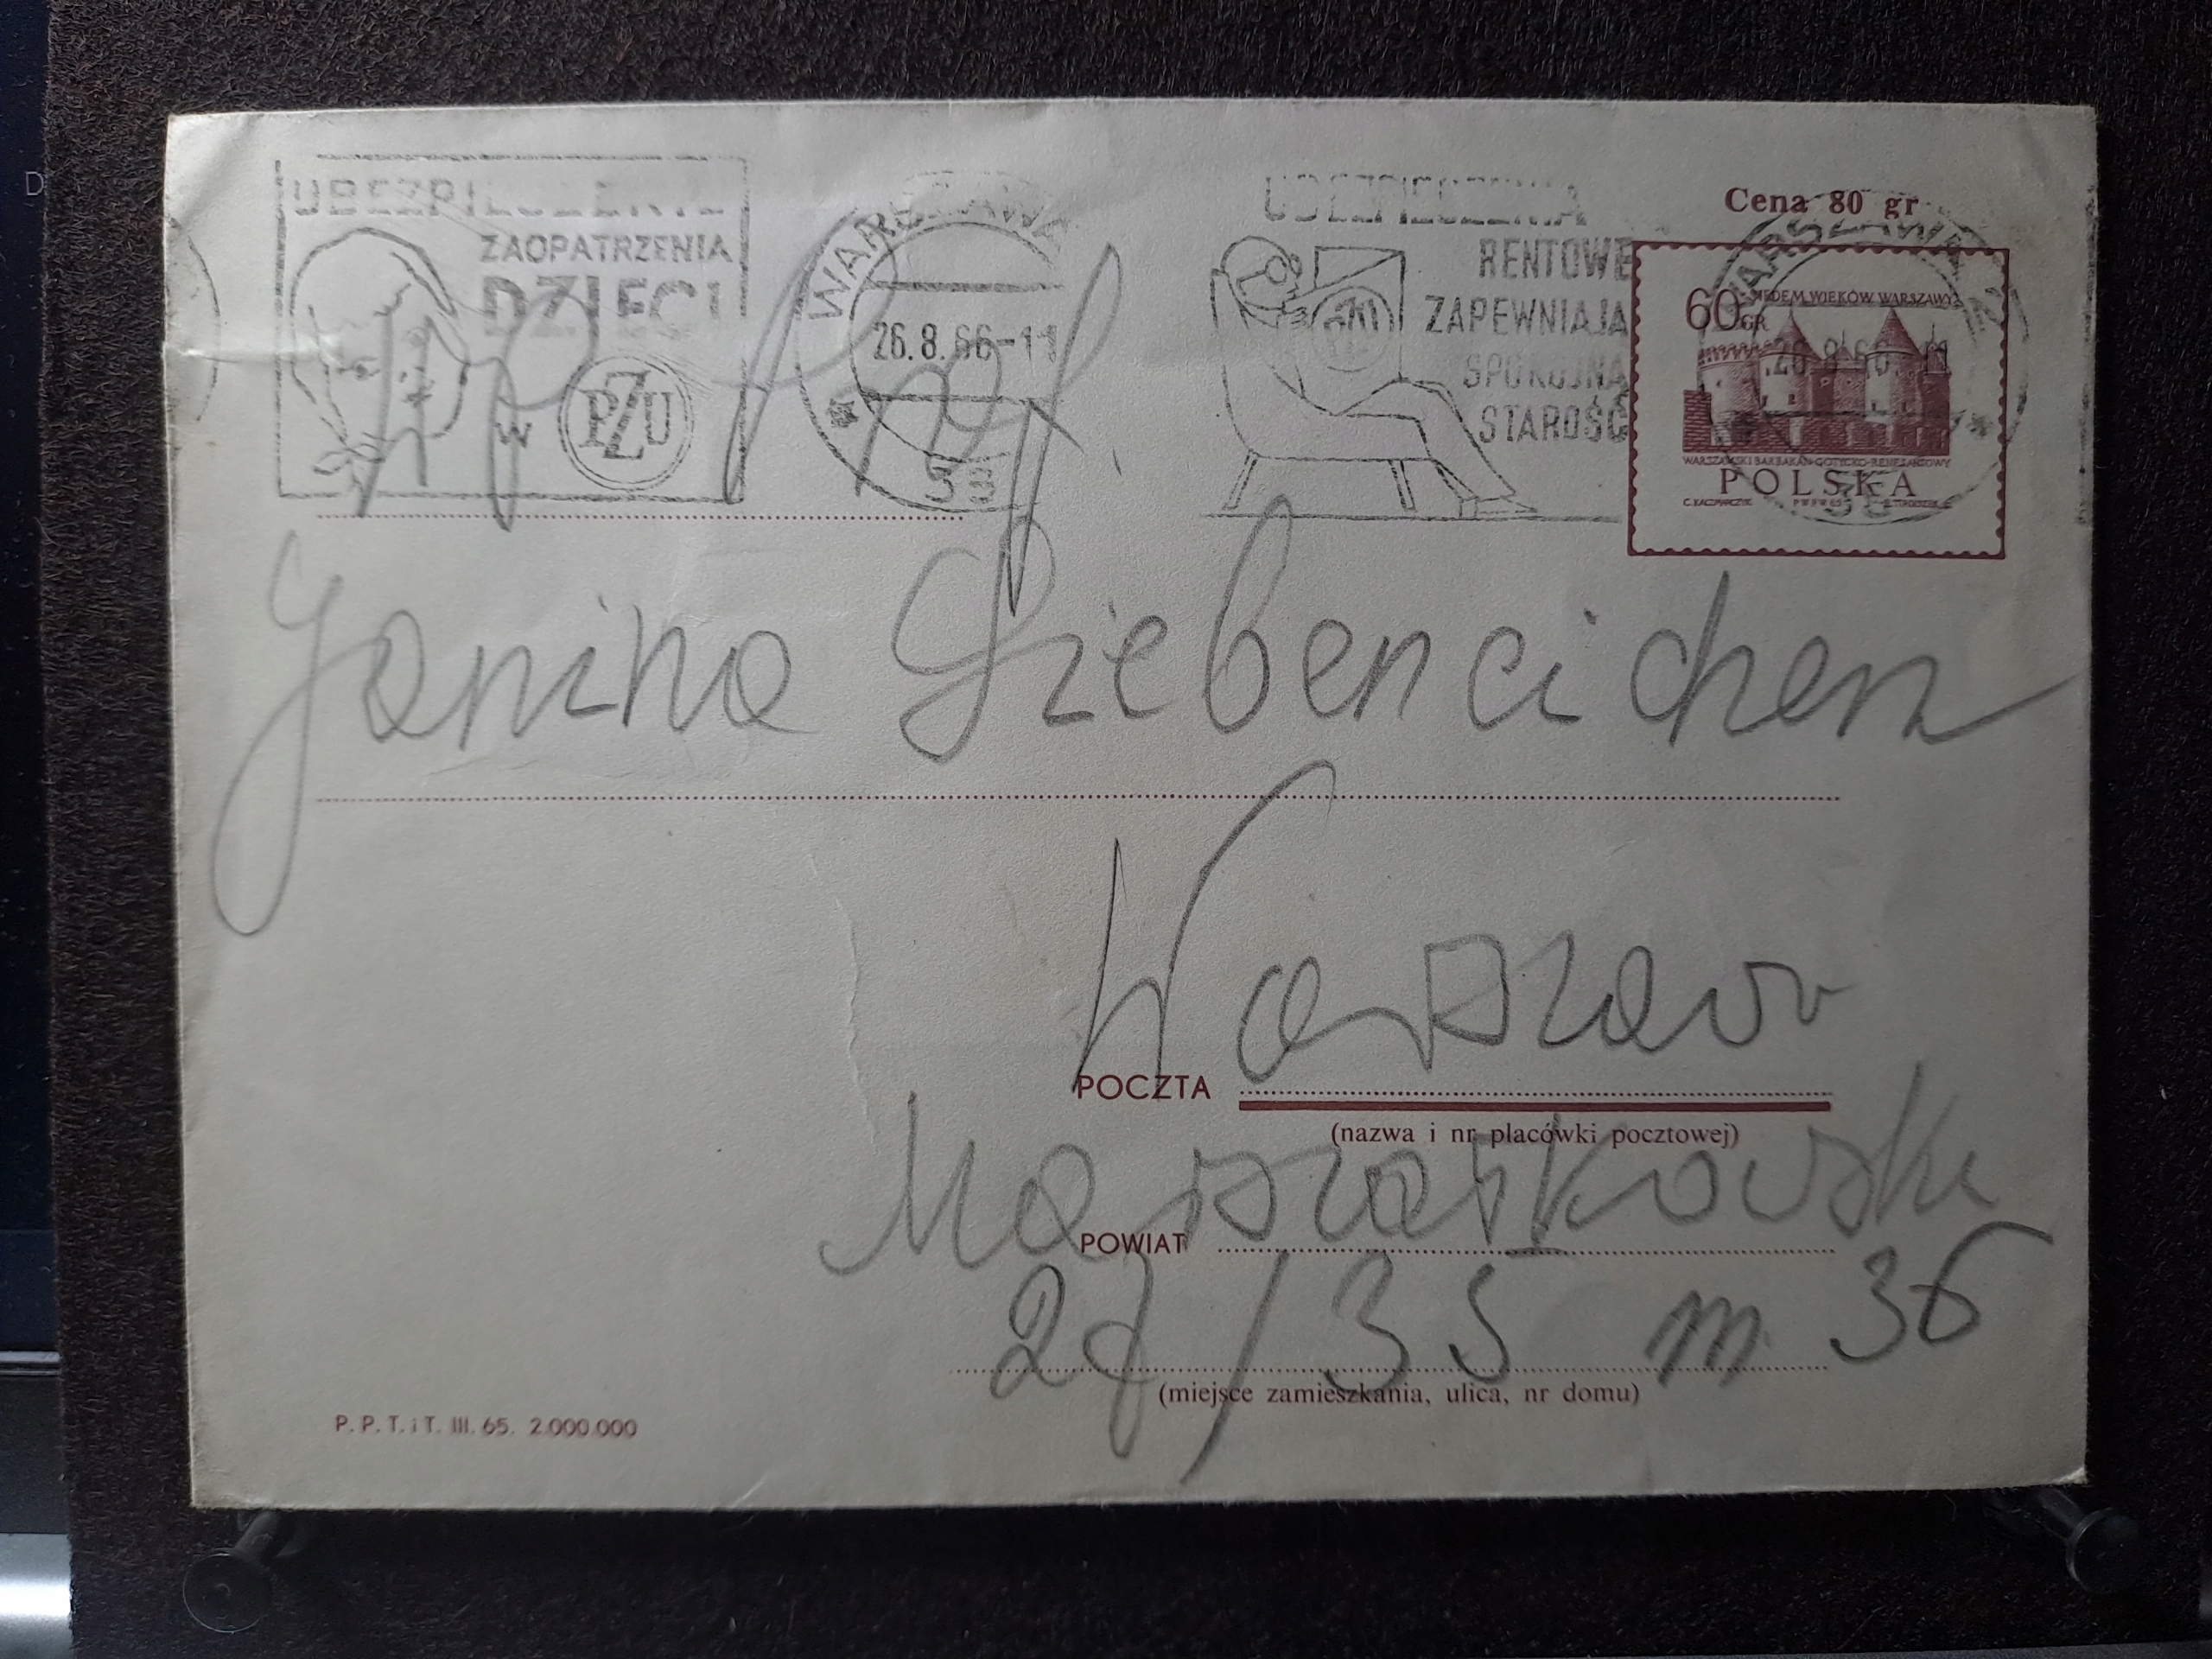 UBEZPIECZENIE
ZAOPATRZENIA
DZIECI
W PZU
WARSZAWA
26.8.66-11
53
UBEZPIECZENIA
RENTOWE
ZAPEWNIAJĄ
SPOKOJNĄ
STAROŚĆ
PZU
Cena 80 gr
WARSZAWA
26.8.66-11
60 GR
SIEDEM WIEKÓW WARSZAWY
WARSZAWSKI BARBAKAN GOTYCKO-RENESANSOWY
POLSKA
C. KACZMARCZYK PWPW 65
Janina
Warszaw
POCZTA
(nazwa i nr placówki pocztowej)
Marszałkowska
POWIAT
27/35 m 36
(miejsce zamieszkania, ulica, nr domu)
P. P. T. i T. III. 65. 2.000.000